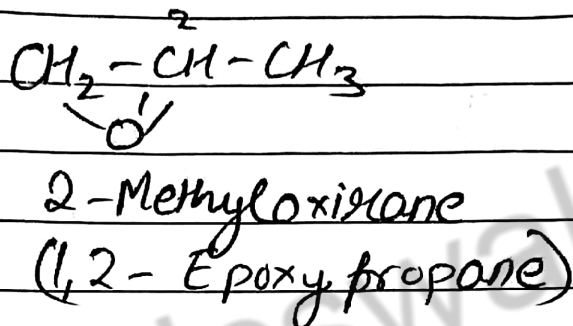 2
CH₂ - CH - CH₃
1
O
2-Methyloxirane
(1,2 - Epoxy propane)